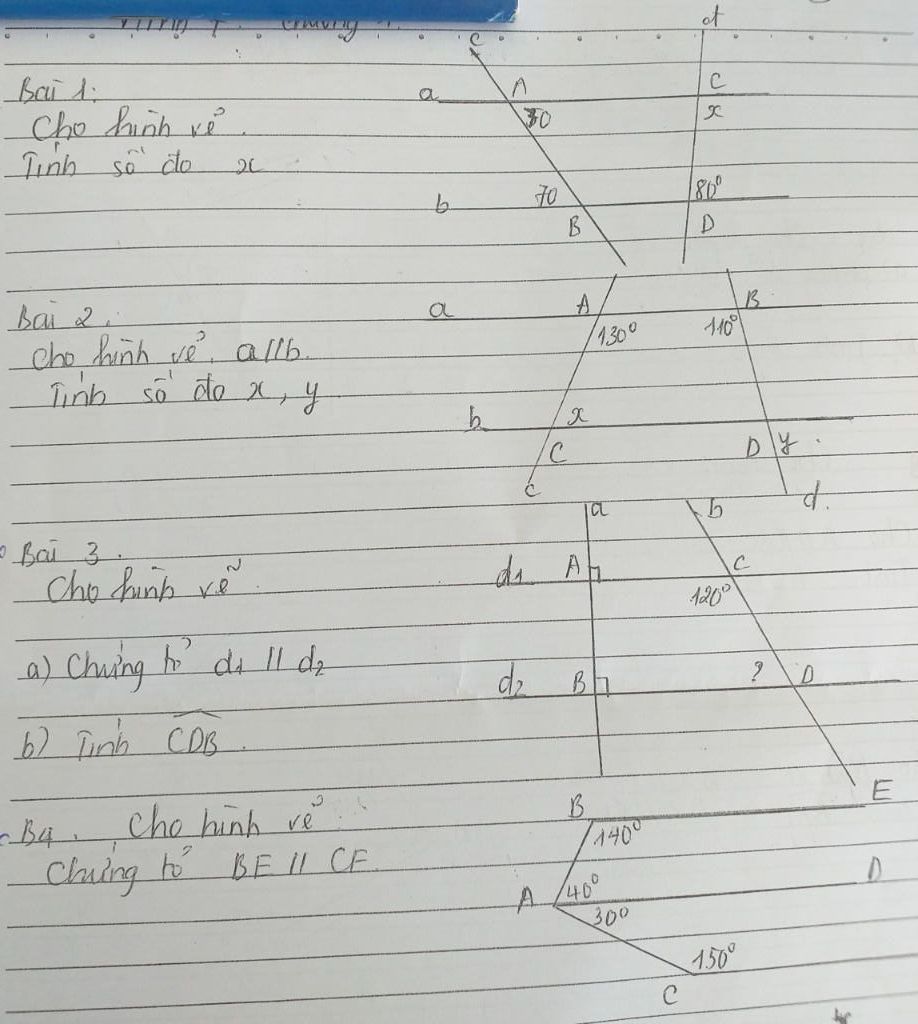 c
d
Bài 1:
a A C
Cho hình vẽ.
70 x
Tính số đo x
b 70 80°
B D
Bài 2.
a A B
130° 110°
Cho hình vẽ. a//b.
Tính số đo x, y
b x
C D y
c d
a b
Bài 3.
Cho hình vẽ.
d1 A C
120°
a) Chứng tỏ d1 // d2
d2 B ? D
b) Tính CDB.
E
B4. Cho hình vẽ
B 140°
Chứng tỏ BE // CF.
A 40° D
30°
150°
C